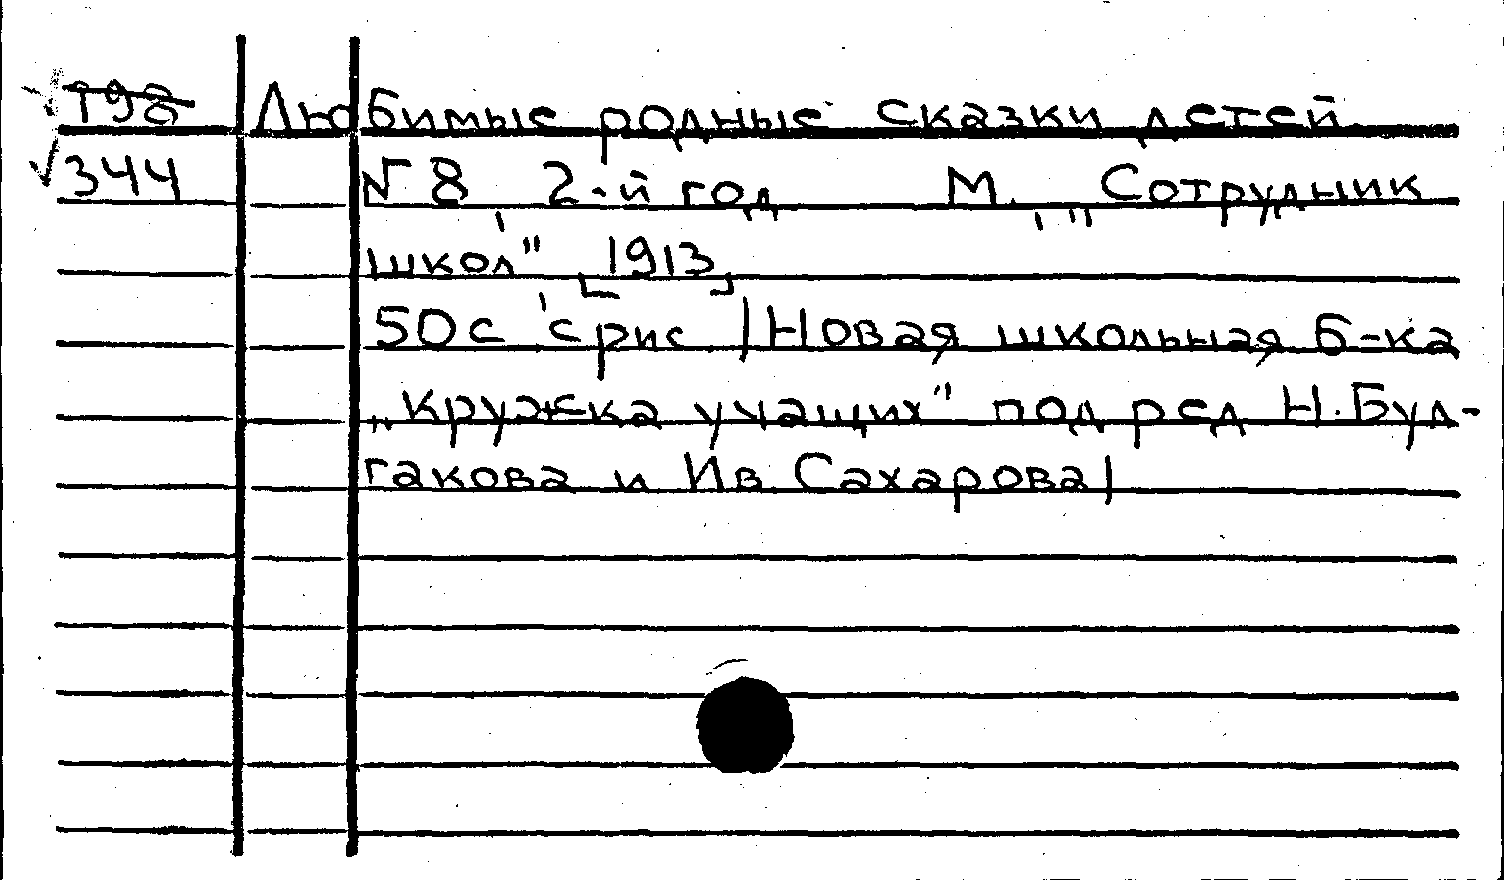 198 Любимые родные сказки детей.
344 № 8, 2-й год М., „Сотрудник
школ", [1913]
50 с, с рис. (Новая школьная б-ка
„Кружка учащих" под ред Н. Бул-
гакова и Ив. Сахарова)